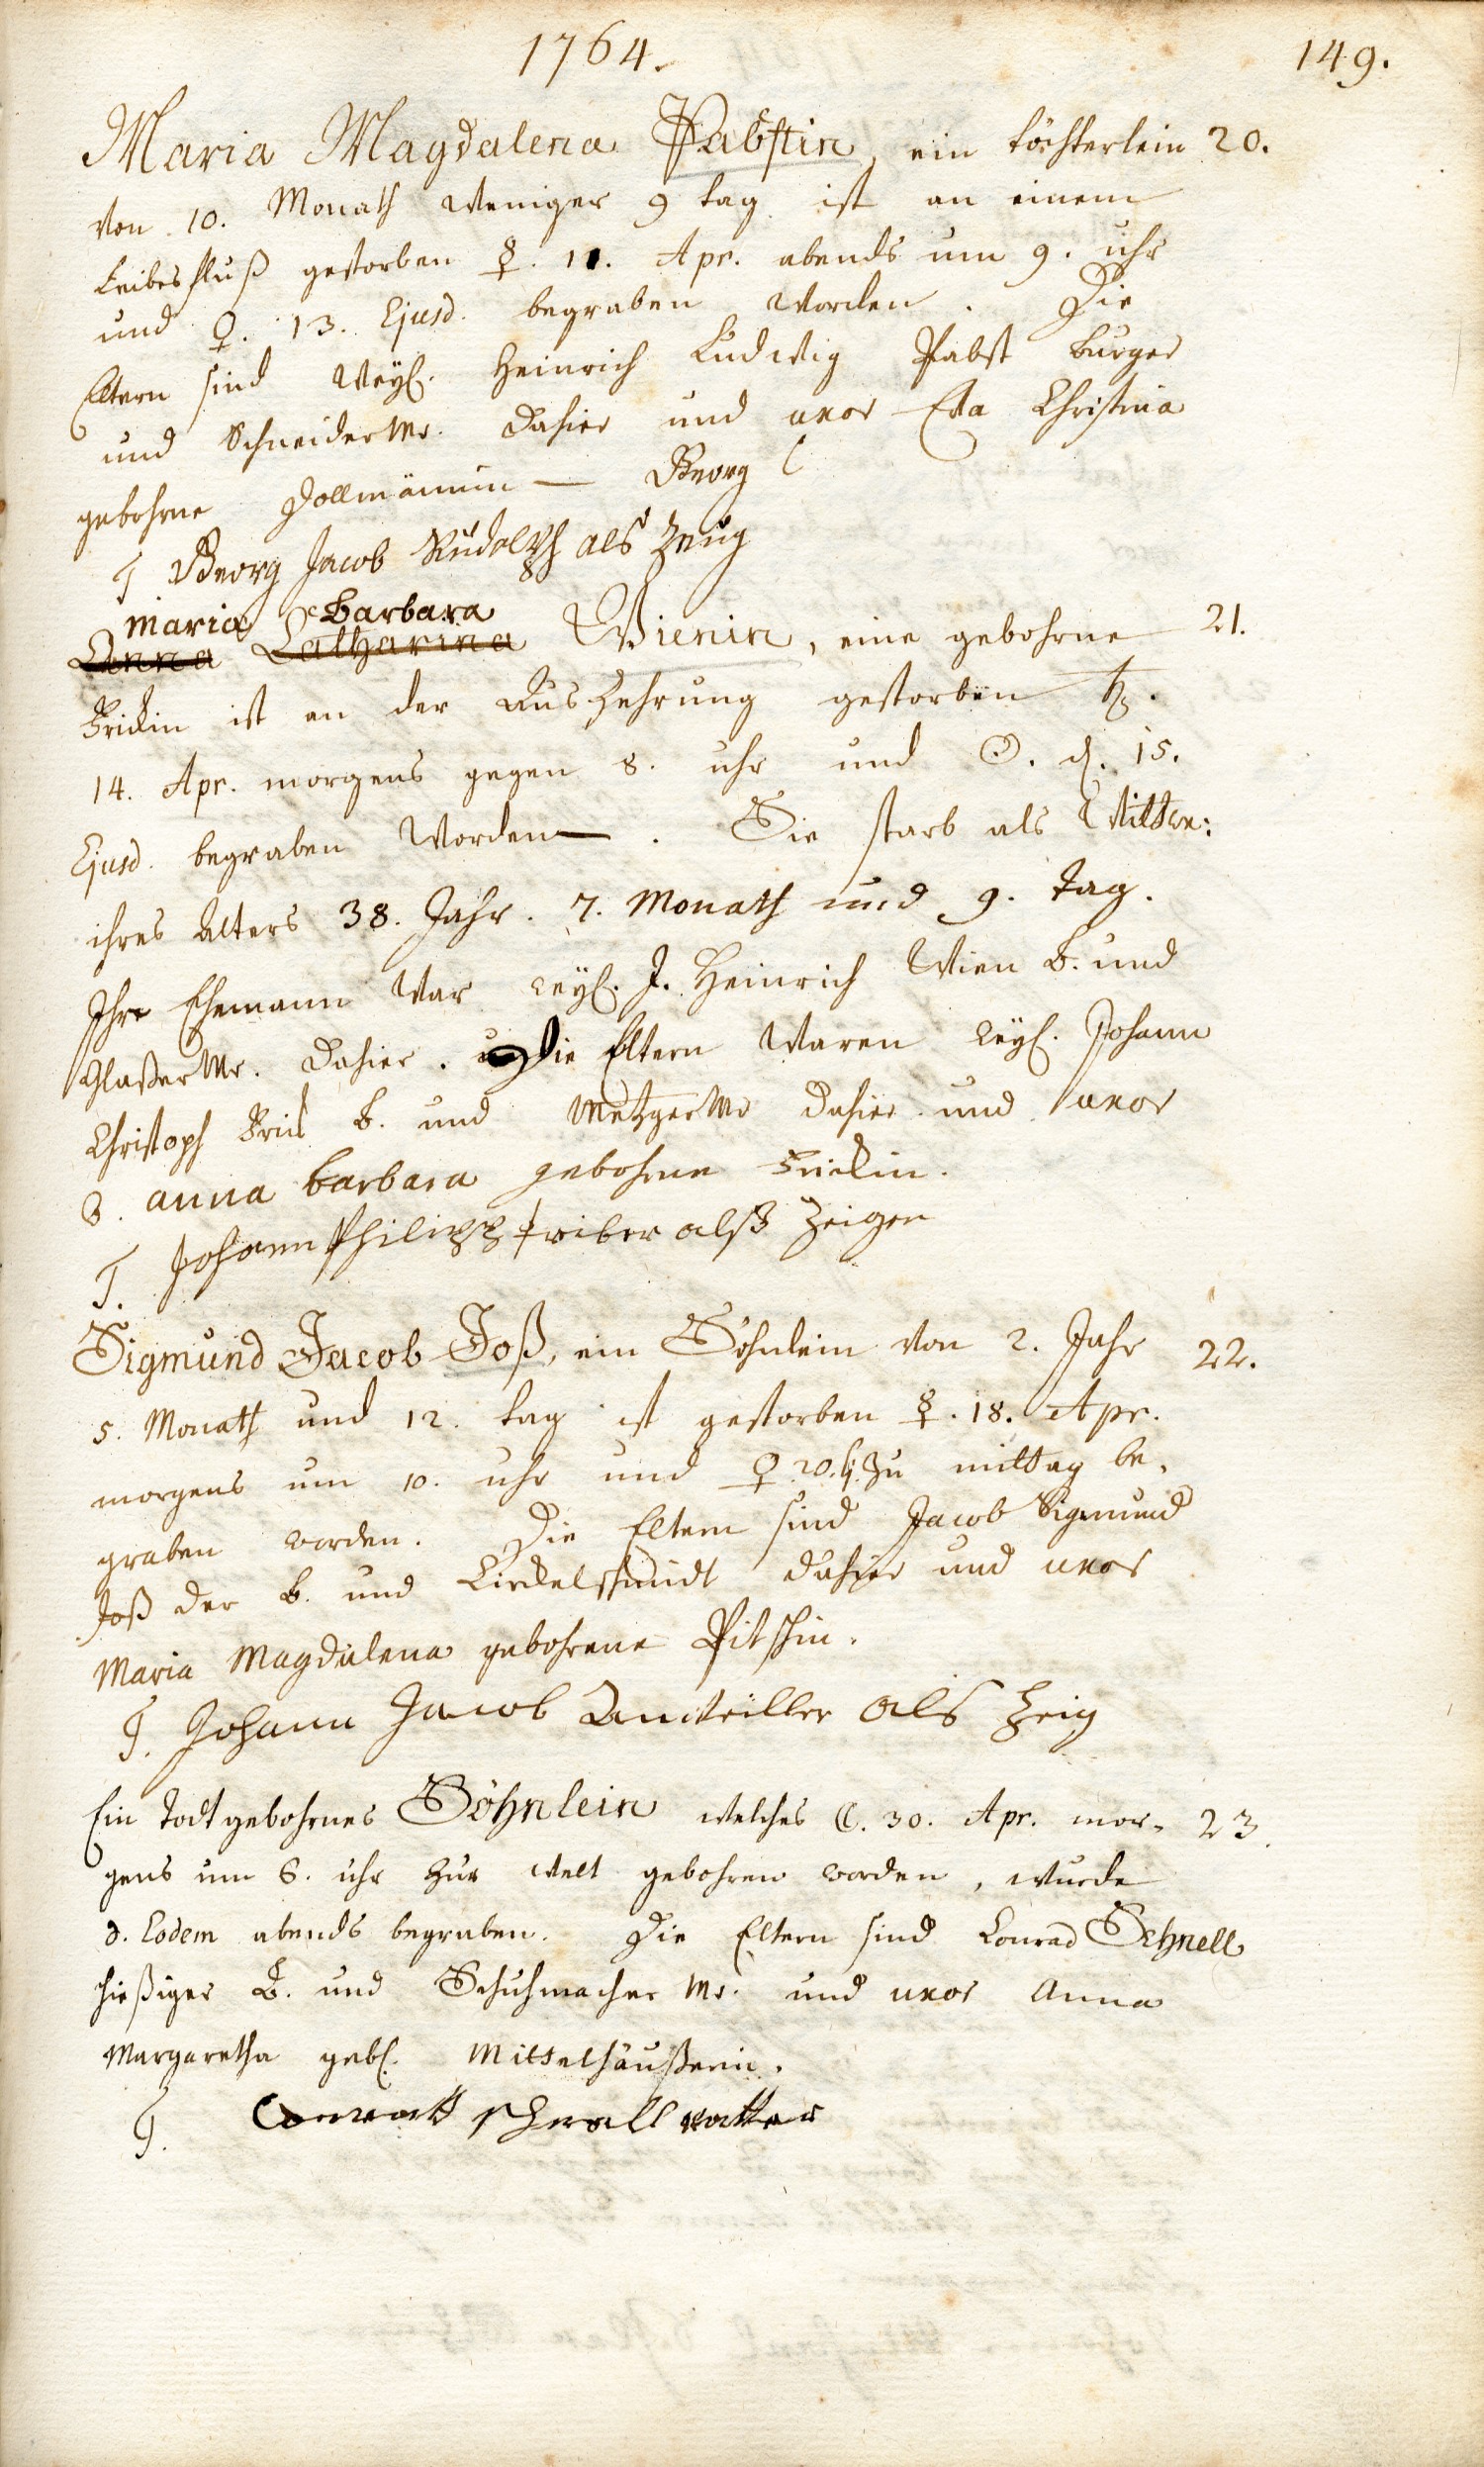 1764.
149.
Maria Magdalena Pabstin, ein töchterlein 20.
Von 10. Monath weniger 9 tag ist an einem
Leibesfluß gestorben ☿. 11. Apr. abends um 9. uhr
und ♀. 13. Ejusd. begraben worden. Die
Eltern sind Weyl. Heinrich Ludwig Pabst burger
und Schneider Mr. dahier und uxor Eva Christina
gebohrne Dollmännin — Georg
T Georg Jacob Rudolph als Zeug
maria Barbara
Anna Catharina Wienin, eine gebohrne 21.
Frickin ist an der Auszehrung gestorben ♄.
14. Apr. morgens gegen 8. uhr und ☉. d. 15.
Ejusd. begraben worden —. Sie starb als Wittwe:
ihres Alters 38. Jahr. 7. Monath und 9. Tag.
Ihr Ehemann war weyl. J. Heinrich Wien b. und
Glaßer Mr. dahier. Die Eltern waren weyl. Johann
Christoph Frick b. und Metzger Mr dahier und uxor
anna barbara gebohrne
T. Johann Philipp alß Zeigen
Sigmund Jacob Joß, ein Söhnlein von 2. Jahr 22.
5. Monath und 12. tag ist gestorben ☿. 18. Apr.
morgens um 10. uhr und ♀ 20. ej. zu mittag be-
graben worden. Die Eltern sind Jacob Sigmund
Joß der b. und dahier und uxor
Maria Magdalena gebohrene
T. Johann Jacob als Zeig
Ein todt gebohrnes Söhnlein welches ☾. 30. Apr. mor- 23.
gens um 6. uhr zur welt gebohren worden, wurde
d. Eodem abends begraben. Die Eltern sind Conrad Schnell
hießiger B. und Schuhmacher Mr. und uxor Anna
Margaretha gebl. Mittelhäußerin.
T. Conratt schnell vatter